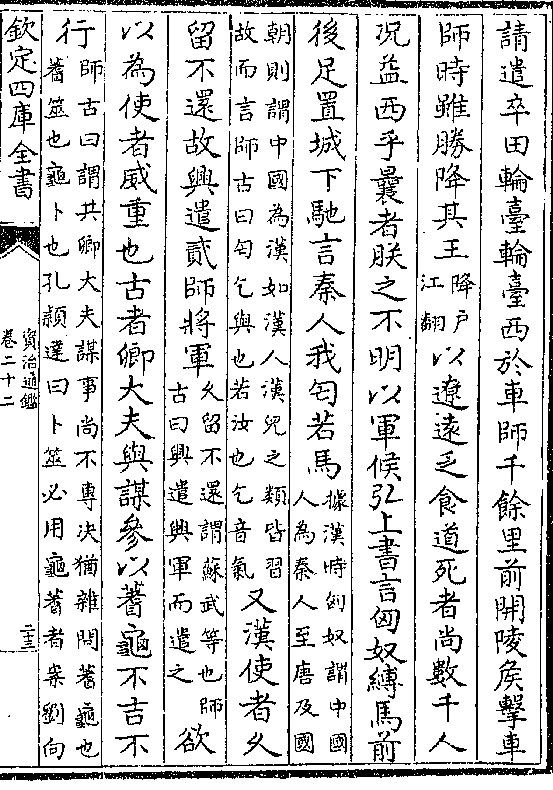 請遣卒田輪臺輪臺西於車師千餘里前開陵矦擊車
師時雖勝降其王降戸江翻以遼遠乏食道死者尚數千人
況益西乎曩者朕之不明以軍候弘上書言匈奴縛馬前
後足置城下馳言秦人我匄若馬據漢時匈奴謂中國人為秦人至唐及國
朝則謂中國為漢如漢人漢兒之類皆習故而言師古曰匄乞與也若汝也乞音氣又漢使者久
留不還故興遣貳師將軍久留不還謂蘇武等也師古曰興遣興軍而遣之欲
以為使者威重也古者卿大夫與謀參以蓍龜不吉不
行師古曰謂共卿大夫謀事尚不專決猶雜問蓍龜也蓍筮也龜卜也孔頴達曰卜筮必用龜蓍者案劉向
欽定四庫全書
資治通鑑
卷二十二
二十三